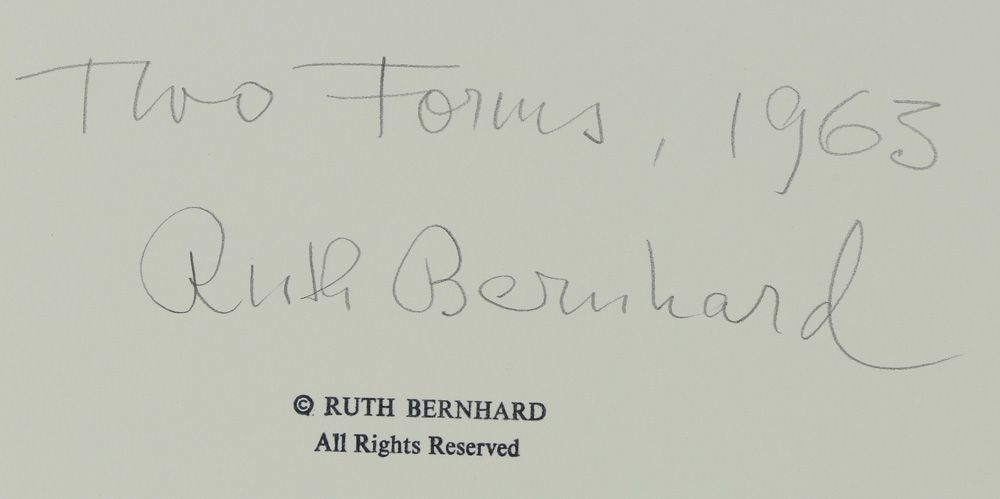 Two Forms, 1963
Ruth Bernhard
© RUTH BERNHARD
All Rights Reserved